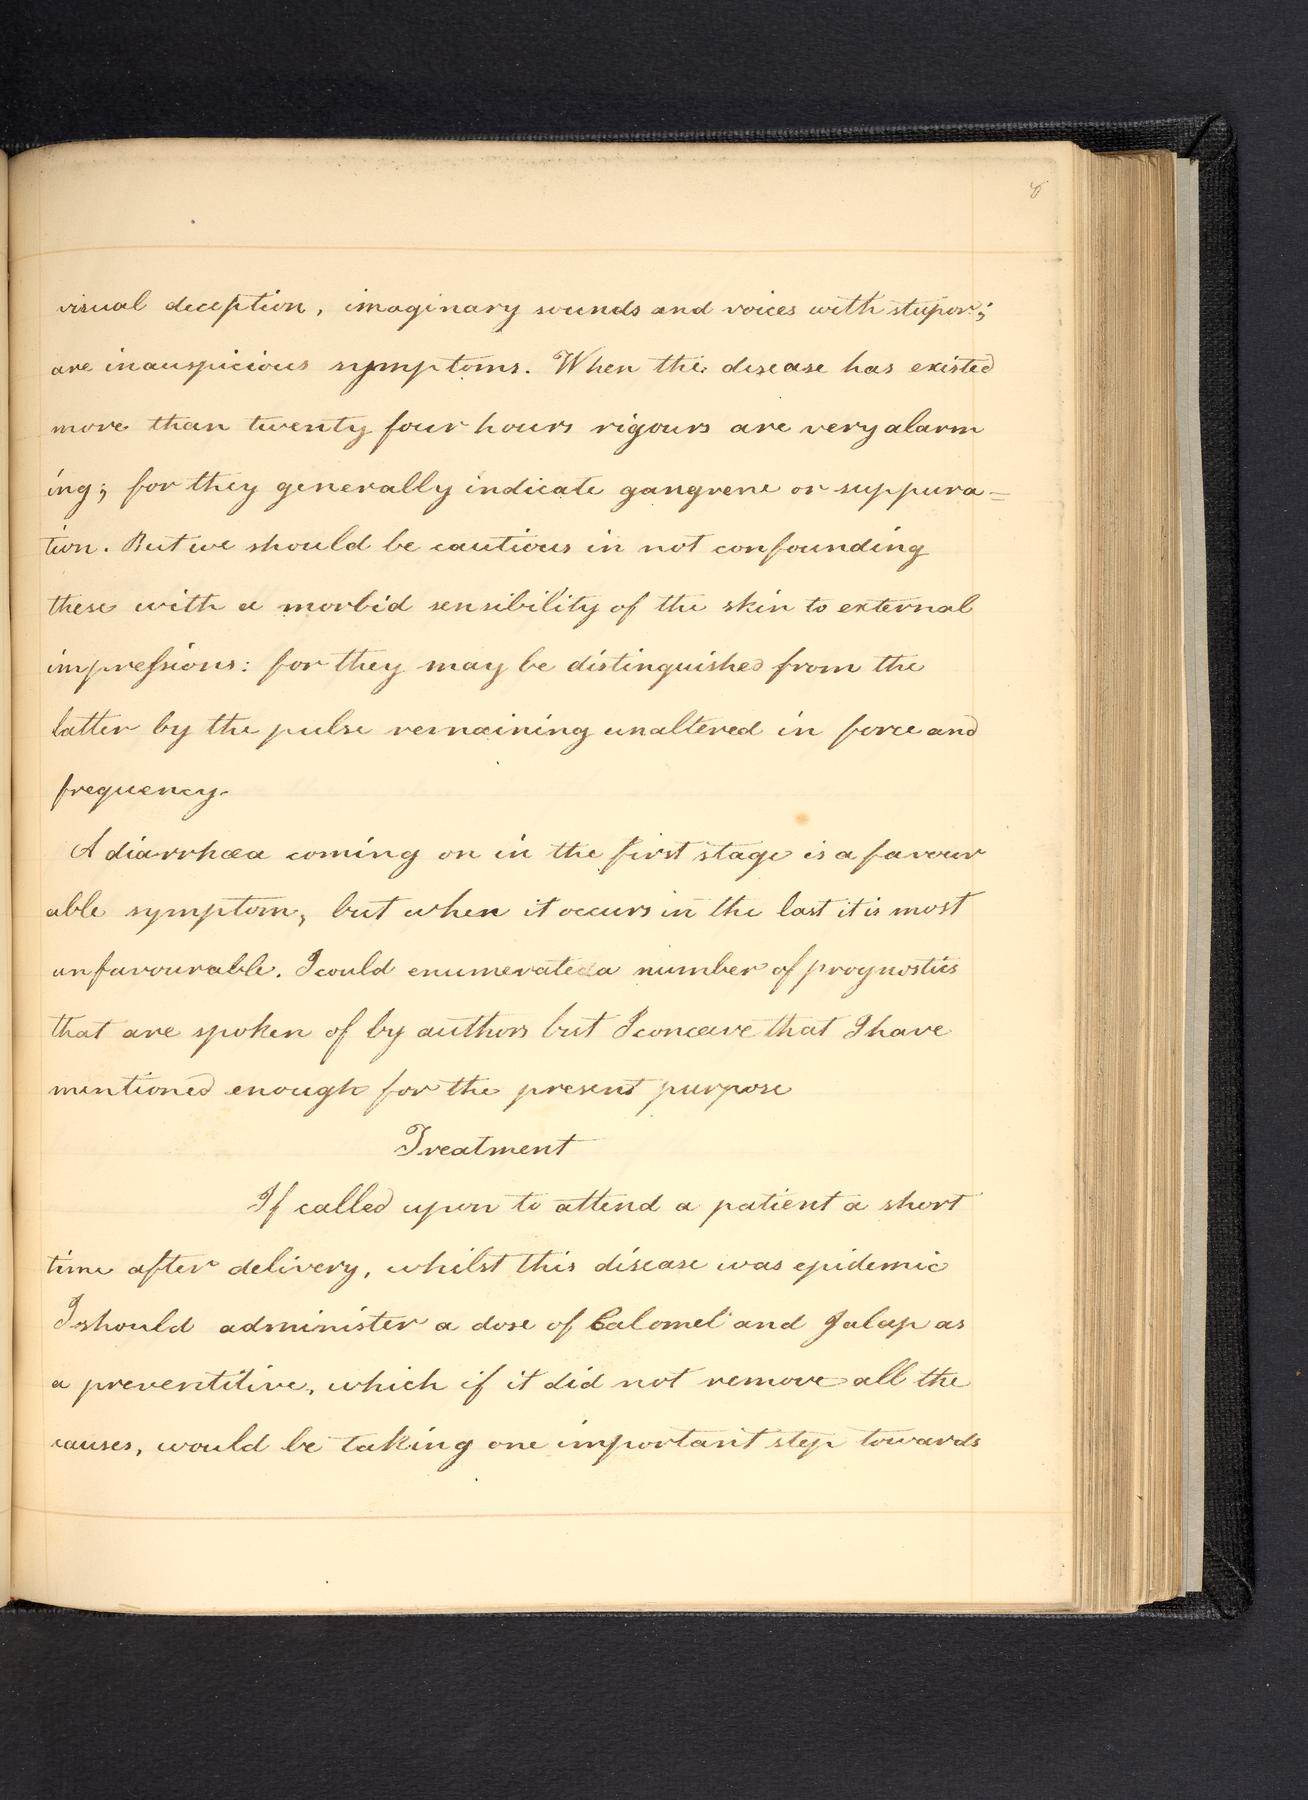 8
visual deception, imaginary sounds and voices with stupor;
are inauspicious symptoms. When the disease has existed
more than twenty four hours rigours are very alarm
ing; for they generally indicate gangrene or suppura=
tion. But we should be cautious in not confounding
these with a morbid sensibility of the skin to external
impressions: for they may be distinguished from the
latter by the pulse remaining unaltered in force and
frequency.
A diarrhœa coming on in the first stage is a favour
able symptom, but when it occurs in the last it is most
unfavourable. I could enumerate a number of prognostics
that are spoken of by authors but I conceave that I have
mentioned enough for the present purpose
Treatment
If called upon to attend a patient a short
time after delivery, whilst this disease was epidemic
I should administer a dose of Calomel and Jalap as
a preventitive, which if it did not remove all the
causes, would be taking one important step towards